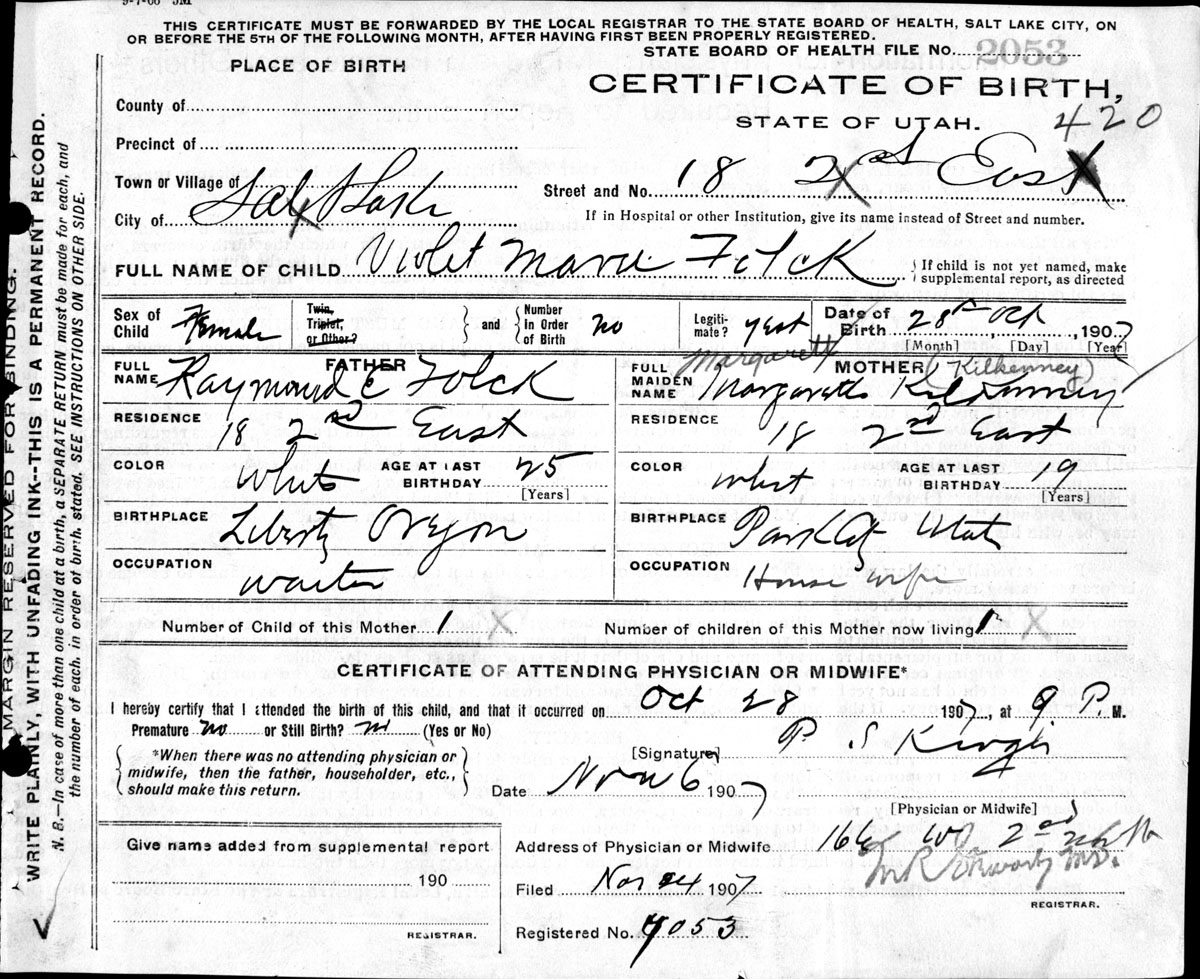 9-7-06 5M
THIS CERTIFICATE MUST BE FORWARDED BY THE LOCAL REGISTRAR TO THE STATE BOARD OF HEALTH, SALT LAKE CITY, ON
OR BEFORE THE 5TH OF THE FOLLOWING MONTH, AFTER HAVING FIRST BEEN PROPERLY REGISTERED.
STATE BOARD OF HEALTH FILE No. 2053
PLACE OF BIRTH
CERTIFICATE OF BIRTH,
STATE OF UTAH.
420
County of
Precinct of
Town or Village of
City of Salt Lake
Street and No. 18 East
If in Hospital or other Institution, give its name instead of Street and number.
FULL NAME OF CHILD Violet Marie Folck
{ If child is not yet named, make supplemental report, as directed
Sex of Child Female
Twin, Triplet, or Other?
and
Number In Order of Birth no
Legitimate? yest
Date of Birth 28th Oct, 1907
[Month] [Day] [Year]
FATHER
FULL NAME Raymond E Folck
RESIDENCE 18 2nd East
COLOR White
AGE AT LAST BIRTHDAY 25
[Years]
BIRTHPLACE Liberty Oregon
OCCUPATION Waiter
MOTHER
Margarett (Kilkenney)
FULL MAIDEN NAME Margarett Kilkenney
RESIDENCE 18 2nd East
COLOR whit
AGE AT LAST BIRTHDAY 19
[Years]
BIRTHPLACE Park City Utah
OCCUPATION House wife
Number of Child of this Mother 1 X
Number of children of this Mother now living 1 X
CERTIFICATE OF ATTENDING PHYSICIAN OR MIDWIFE*
I hereby certify that I attended the birth of this child, and that it occurred on Oct 28 1907, at 9 P. M.
Premature no or Still Birth? no (Yes or No)
*When there was no attending physician or midwife, then the father, householder, etc., should make this return.
[Signature] P S
Date Nov 6 1907
[Physician or Midwife]
Address of Physician or Midwife 166 2nd
Give name added from supplemental report
190
REGISTRAR.
Filed Nov 24 1907
M.D.
REGISTRAR.
Registered No. 4053
MARGIN RESERVED FOR BINDING.
WRITE PLAINLY, WITH UNFADING INK--THIS IS A PERMANENT RECORD.
N. B.—In case of more than one child at a birth, a SEPARATE RETURN must be made for each, and
the number of each, in order of birth, stated. SEE INSTRUCTIONS ON OTHER SIDE.